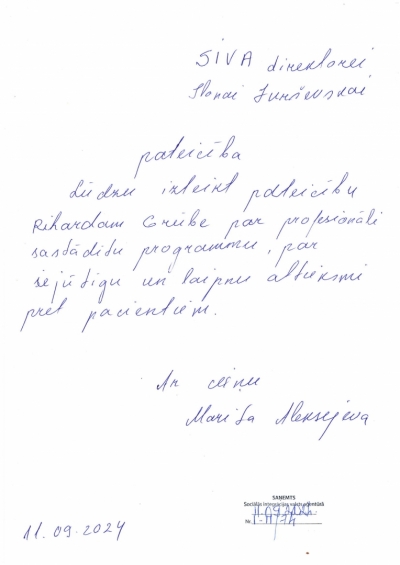 SIVA direktorei
Ilonai Jurševskai
pateicība
Lūdzu izteikt pateicību
Rihardam Grube par profesionāli
sastādītu programmu, par
iejūtīgu un laipnu attieksmi
pret pacientiem.
Ar cieņu
Marija Aleksejeva
SAŅEMTS
Sociālās integrācijas valsts aģentūrā
11.09.2024
Nr.
11.09.2024